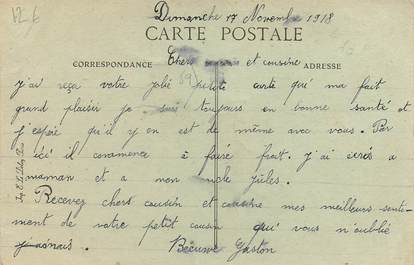 12 €
Dimanche 17 Novembre 1918
CARTE POSTALE
CORRESPONDANCE
ADRESSE
Chers et cousine
j'ai reçu votre jolie petite carte qui ma fait
grand plaisir je suis toujours en bonne santé et
j'espère qu'il y en est de même avec vous. Par
ici il commence à faire froit. J'ai écris a
maman et a mon oncle Jules.
Recevez chers cousin et cousine mes meilleurs senti-
ment de votre petit cousin qui vous n'oublie
jamais. Bécuwe Gaston